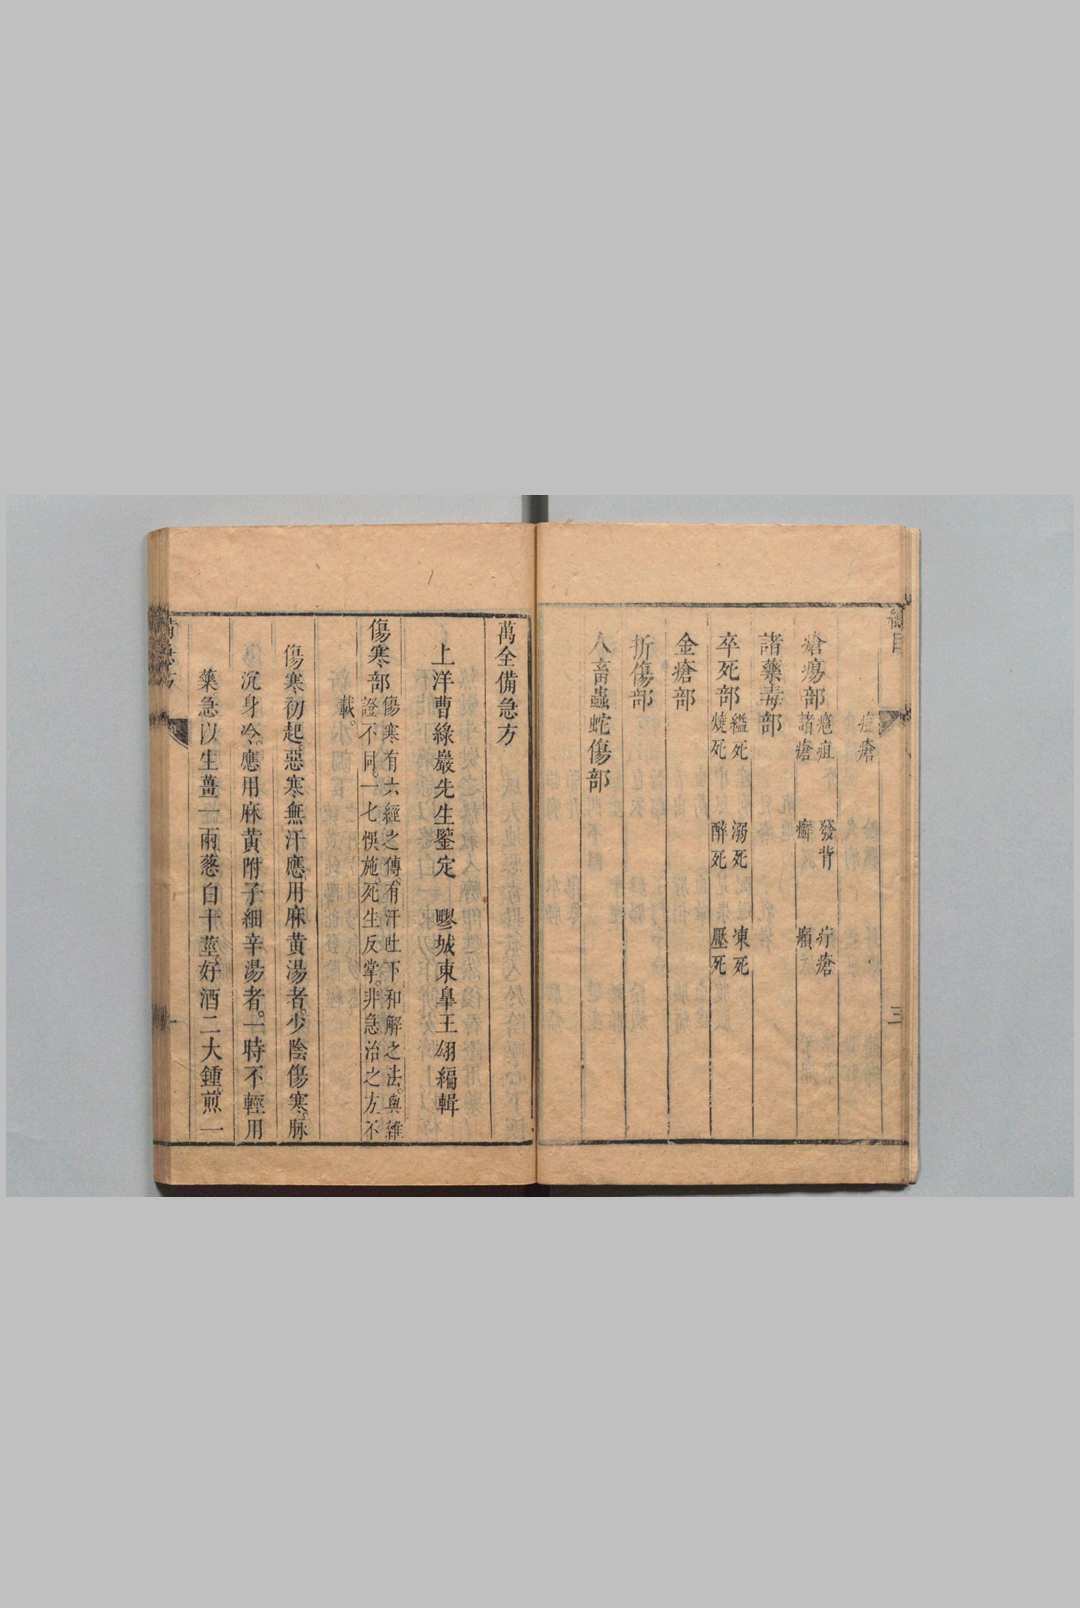 痘瘡
瘡瘍部 癰疽 發背 疔瘡
諸瘡 癬 癩
諸藥毒部
卒死部 縊死 溺死 凍死
燒死 醉死 壓死
金瘡部
折傷部
人畜蟲蛇傷部
三
萬全備急方
上洋曹綠巖先生鑒定 膠城東臯王翃編輯
傷寒部 傷寒有六經之傳。有汗吐下和解之法。與雜
證不同。一七悞施。死生反掌。非急治之方。不
載。
傷寒初起。惡寒無汗。應用麻黃湯者。少陰傷寒。脉
沉身冷。應用麻黃附子細辛湯者。一時不輕用
藥。急以生薑一兩。葱白十莖。好酒二大鍾。煎一
備急方
一